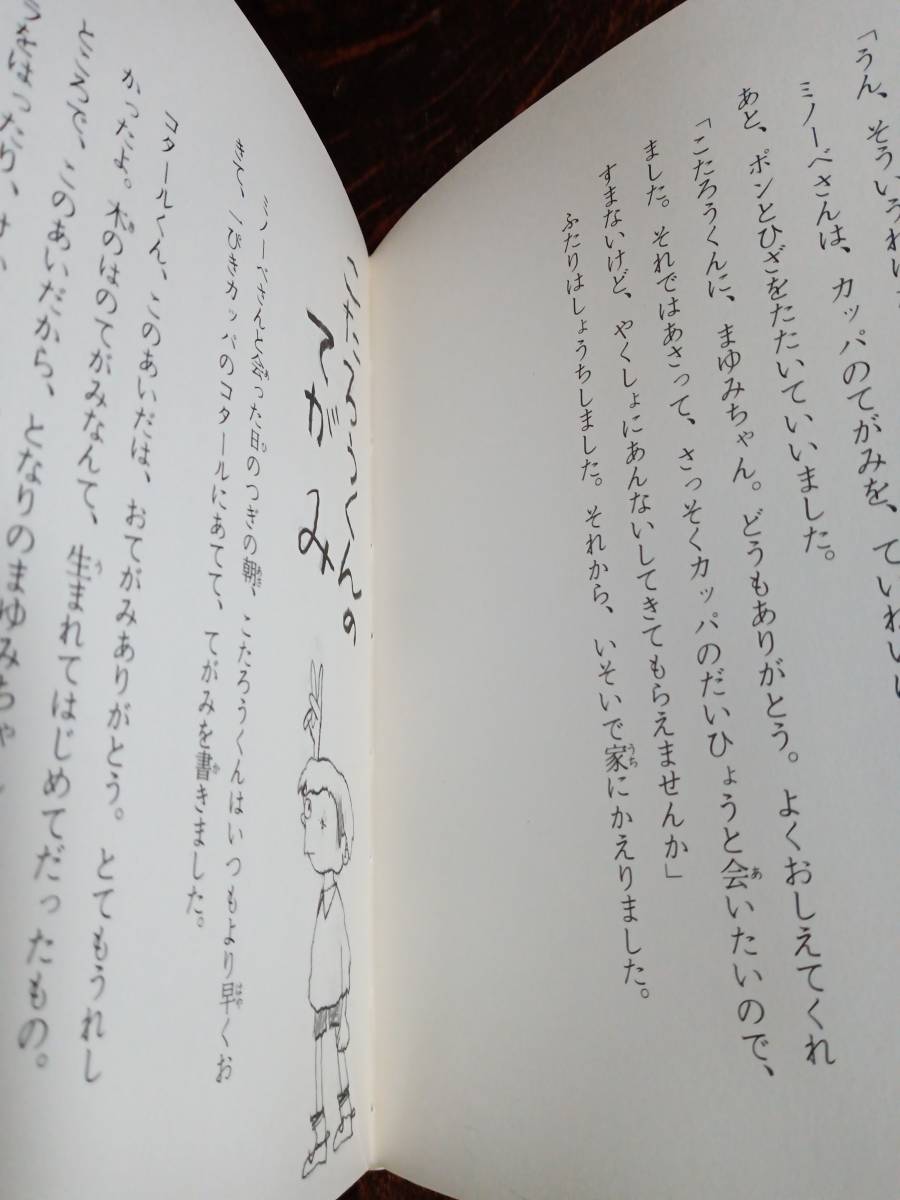 「うん、そういうわけ
ミノーベさんは、カッパのてがみを、ていねいに
あと、ポンとひざをたたいていいました。
「こたろうくんに、まゆみちゃん。どうもありがとう。よくおしえてくれ
ました。それではあさって、さっそくカッパのだいひょうと会いたいので、
すまないけど、やくしょにあんないしてきてもらえませんか」
ふたりはしょうちしました。それから、いそいで家にかえりました。
こたろうくんの
てがみ
ミノーベさんと会った日のつぎの朝、こたろうくんはいつもより早くお
きて、一ぴきカッパのコタールにあてて、てがみを書きました。
コタールくん、このあいだは、おてがみありがとう。とてもうれし
かったよ。木のはのてがみなんて、生まれてはじめてだったもの。
ところで、このあいだから、となりのまゆみちゃ